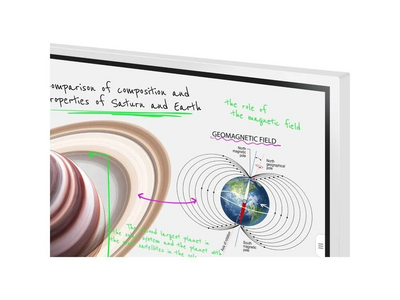 omparison of composition and
roperties of Saturn and Earth
the role of
the magnetic field
GEOMAGNETIC FIELD
North
magnetic
pole
North
geographical
pole
The second largest planet in
the solar system and the planet with
satellites in the
South
magnetic
pole